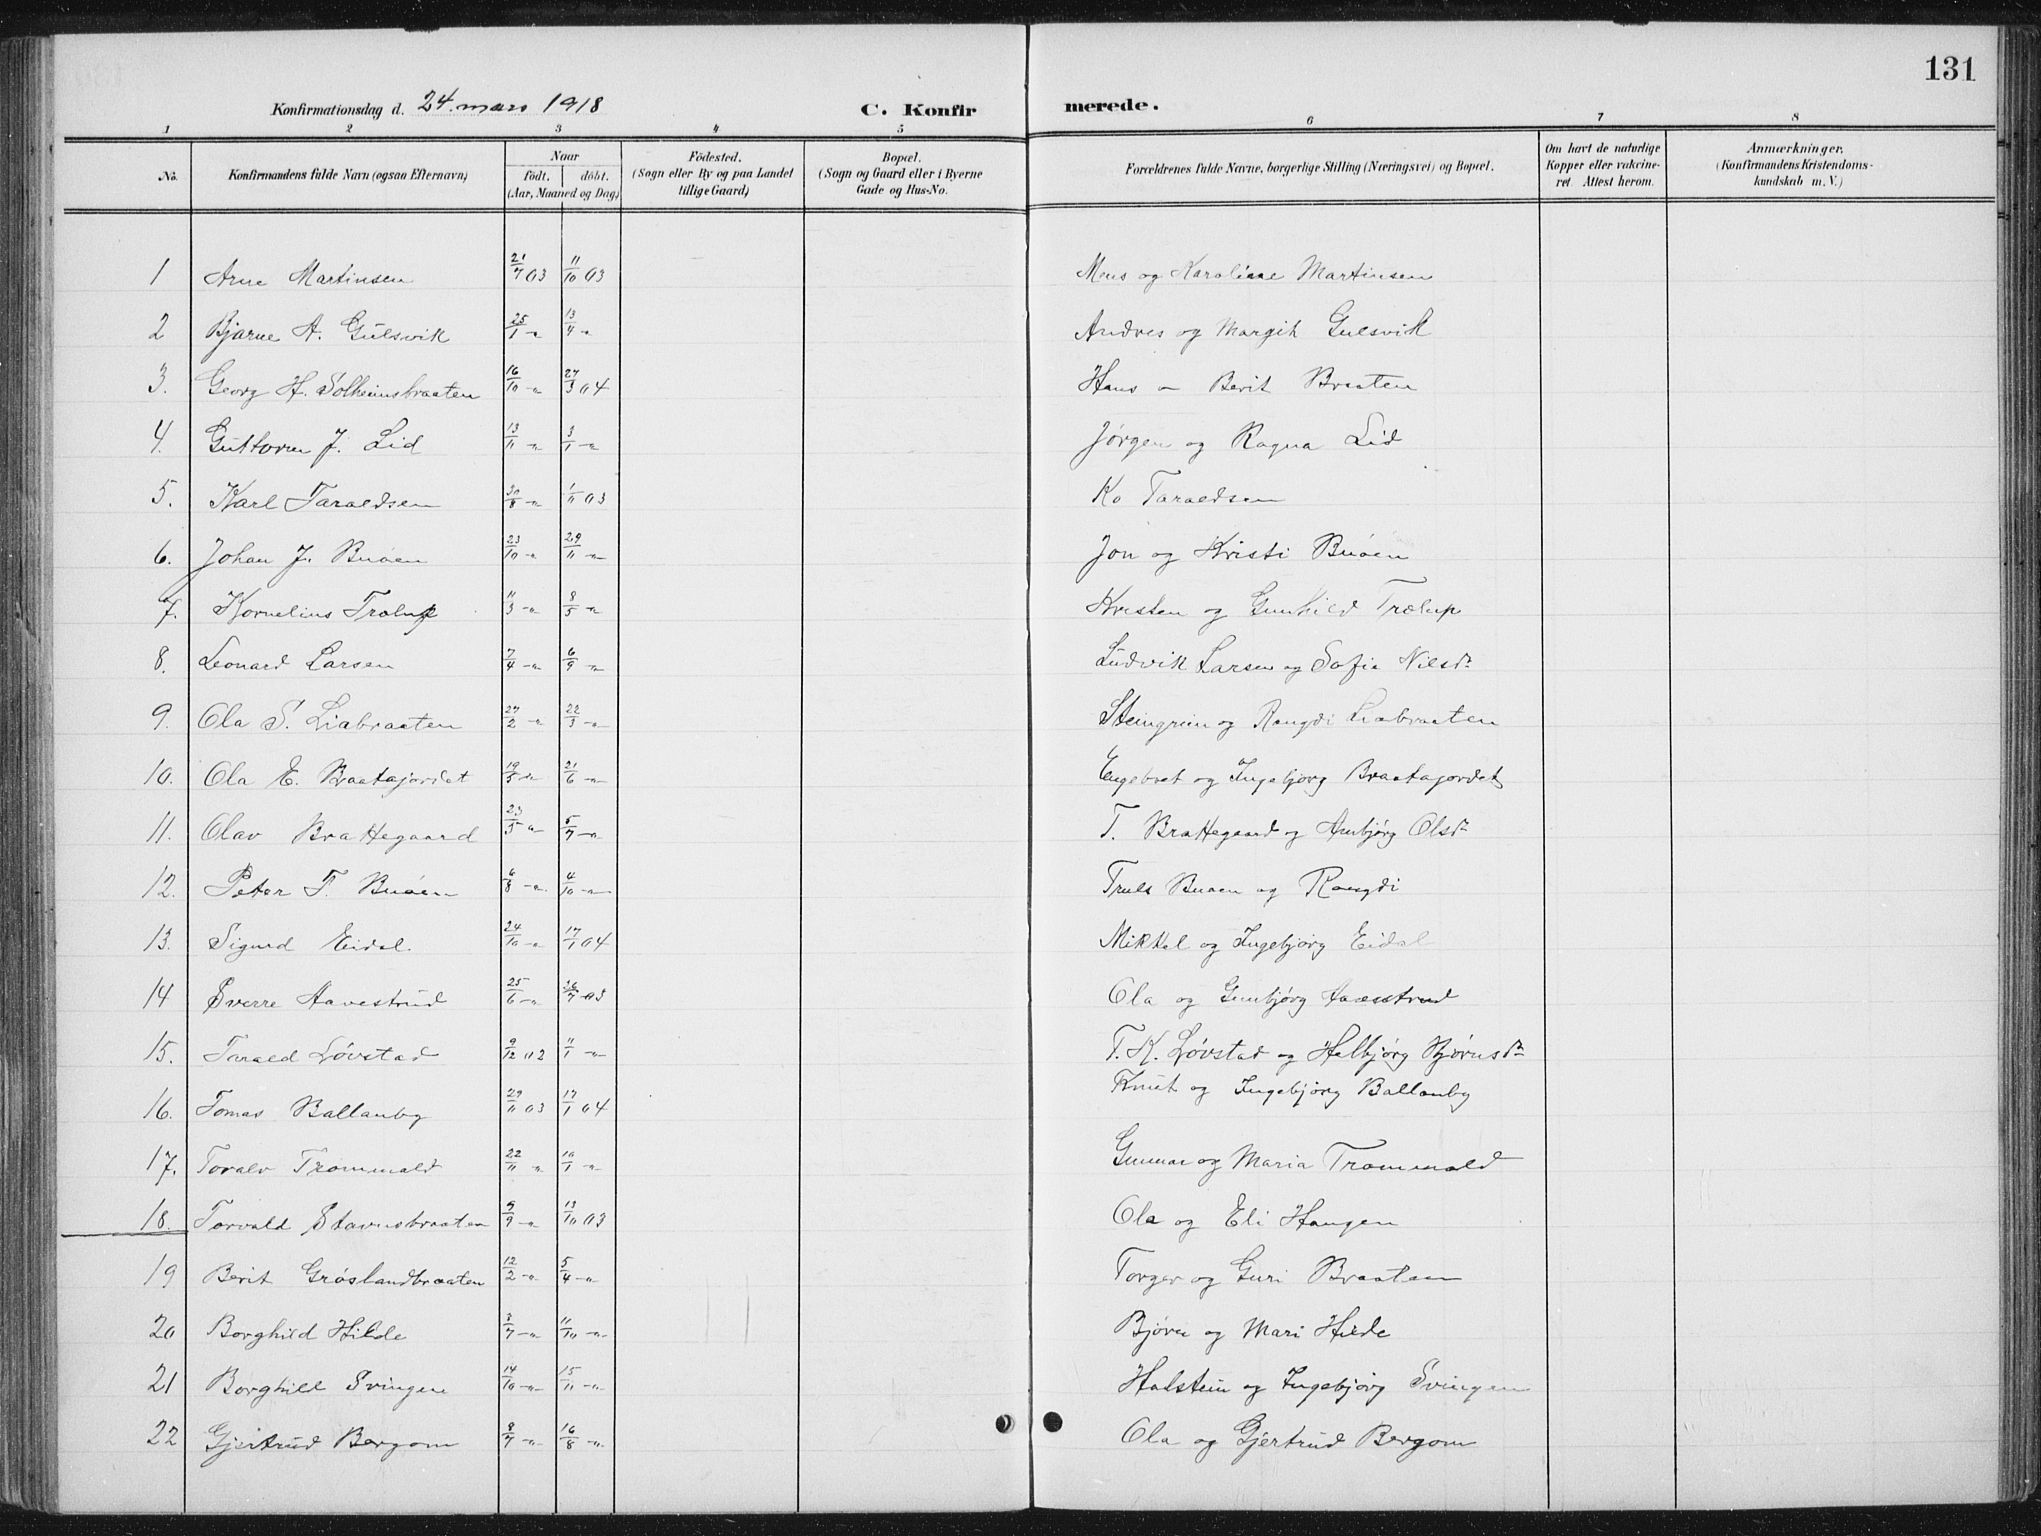 131
Konfirmationsdag d. 24. mars 1918 C. Konfirmerede.
1 2 3 4 5 6 7 8
No. Konfirmandens fulde Navn (ogsaa Efternavn) Naar født. døbt. (Aar, Maaned og Dag) Fødested. (Sogn eller By og paa Landet tillige Gaard) Bopæl. (Sogn og Gaard eller i Byerne Gade og Hus-No. Forældrenes fulde Navne, borgerlige Stilling (Næringsvei) og Bopæl. Om havt de naturlige Kopper eller vakcineret Attest herom. Anmærkninger. (Konfirmandens Kristendomskundskab m. V.)
1 Arne Martinsen 21/7 03 11/10 03 Mens og Karoline Martinsen
2 Bjarne A. Gulsvik 25/1 -"- 13/4 -"- Andres og Margit Gulsvik
3. Georg H. Solheimsbraaten 16/10 -"- 27/3 04 Hans - Berit Braaten
4. Guttorm J. Lid 13/11 -"- 3/1 -"- Jørgen og Ragna Lid
5. Karl Taraldsen 30/8 -"- 1/11 03 Ko Taraldsen
6. Johan J. Buøen 23/10 -"- 29/11 -"- Jon og Kristi Buøen
7. Kornelius Trolup 11/3 -"- 8/5 -"- Kristen og Gunhild Trælup
8. Leonard Larsen 7/4 -"- 6/9 -"- Ludvik Larsen og Sofie Nilsdr
9. Ola S. Liabraaten 27/2 -"- 22/3 -"- Steingrim og Rangdi Liabraaten
10. Ola E. Braatajordet 19/5 -"- 21/6 -"- Engebret og Ingebjørg Braatajordet
11. Olav Brattegaard 23/5 -"- 5/7 -"- T. Brattegaard og Anbjørg Olsdr
12. Peter T. Buøen 6/8 -"- 4/10 -"- Truls Buøen og Rangdi
13. Sigurd Eidal. 24/10 -"- 17/1 04 Mikkel og Ingebjørg Eidal
14 Sverre Havestrud 25/6 -"- 26/7 03 Ola og Gunbjørg Havestrud
15. Tarald Løvstad 9/12 02 11/1 -"- T. K. Løvstad og Helbjørg Bjørnsdr
16. Tomas Ballanby 29/11 03 17/1 04 Knut og Ingebjørg Ballanby
17. Toralv Trommald 22/11 -"- 10/1 -"- Gunnar og Maria Trommald
18. Torvald Stavnsbraaten 9/9 -"- 13/10 03 Ola og Eli Haugen
19 Berit Grøslandbraaten 12/2 -"- 5/4 -"- Torger og Guri Braaten
20 Borghild Hilde 3/7 -"- 11/10 -"- Bjørn og Mari Hilde
21 Borghild Svingen 14/10 -"- 15/11 -"- Halstein og Ingebjørg Svingen
22 Gjertrud Bergom 8/7 -"- 16/8 -"- Ola og Gjertrud Bergom